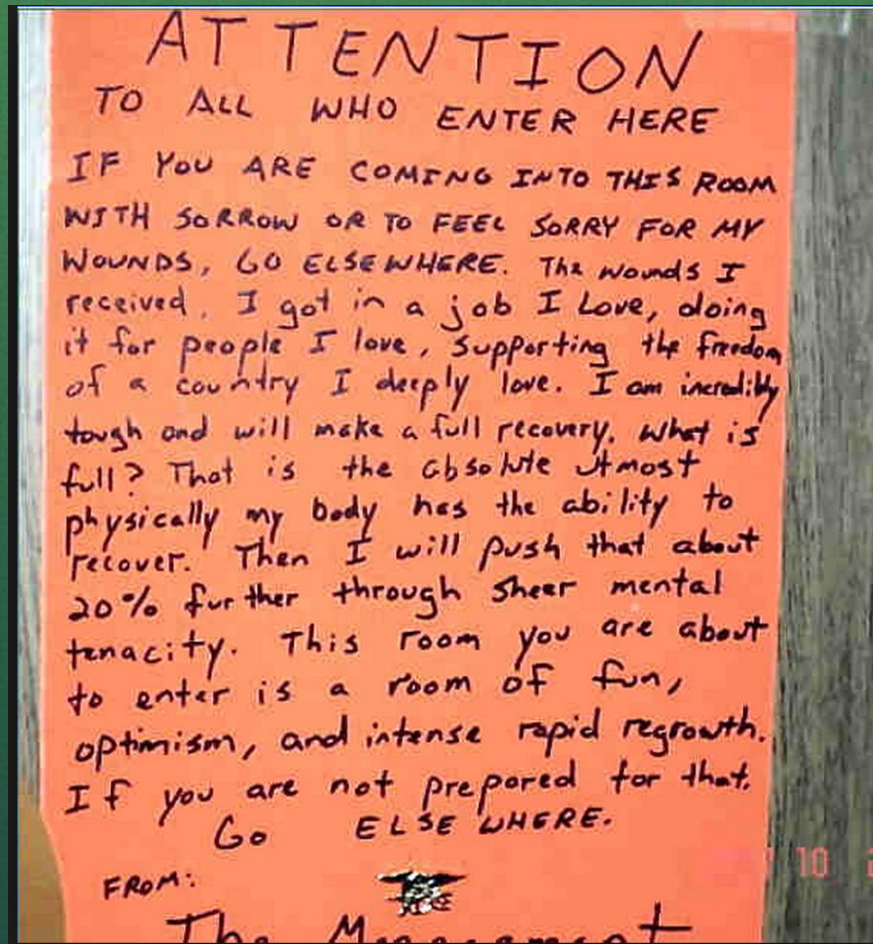 ATTENTION
TO ALL WHO ENTER HERE
IF YOU ARE COMING INTO THIS ROOM
WITH SORROW OR TO FEEL SORRY FOR MY
WOUNDS, GO ELSEWHERE. The wounds I
received. I got in a job I Love, doing
it for people I love, supporting the freedom
of a country I deeply love. I am incredibly
tough and will make a full recovery. What is
full? That is the absolute utmost
physically my body has the ability to
recover. Then I will push that about
20% further through sheer mental
tenacity. This room you are about
to enter is a room of fun,
optimism, and intense rapid regrowth.
If you are not prepared for that.
Go ELSEWHERE.
FROM:
The Management
10 2